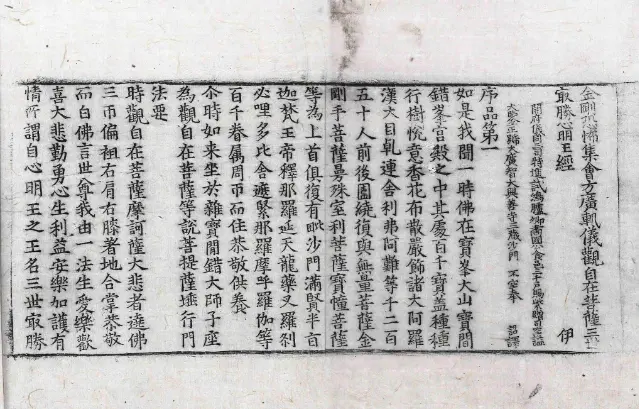 金剛恐怖集會方廣軌儀觀自在菩薩三世
㝡勝心明王經　伊
開府儀同三司特進試鴻臚卿肅國公食邑三千戶賜紫贈司空謚
大鑒正號大廣智大興善寺三藏沙門　不空奉　詔譯
序品第一
如是我聞一時佛在寶峯大山寶間
錯峯宮殿之中其處百千寶蓋種種
行樹悅意香花布散嚴飾諸大阿羅
漢大目乹連舍利弗阿難等千二百
五十人前後圍繞復與無量菩薩金
剛手菩薩曼殊室利菩薩寶幢菩薩
等為上首俱復有毗沙門滿賢半百
迦梵王帝釋那羅延天龍藥叉羅剎
必哩多比舍遮緊那羅摩呼羅伽等
百千眷属周帀而住恭敬供養
尒時如来坐於雜寶閒錯大師子座
為觀自在菩薩等說菩提薩埵行門
法要
時觀自在菩薩摩訶薩大悲者遶佛
三帀偏袒右肩右膝著地合掌恭敬
而白佛言世尊我由一法生愛樂歡
喜大悲勤勇心生利益安樂加護有
情所謂自心明王之王名三世㝡勝